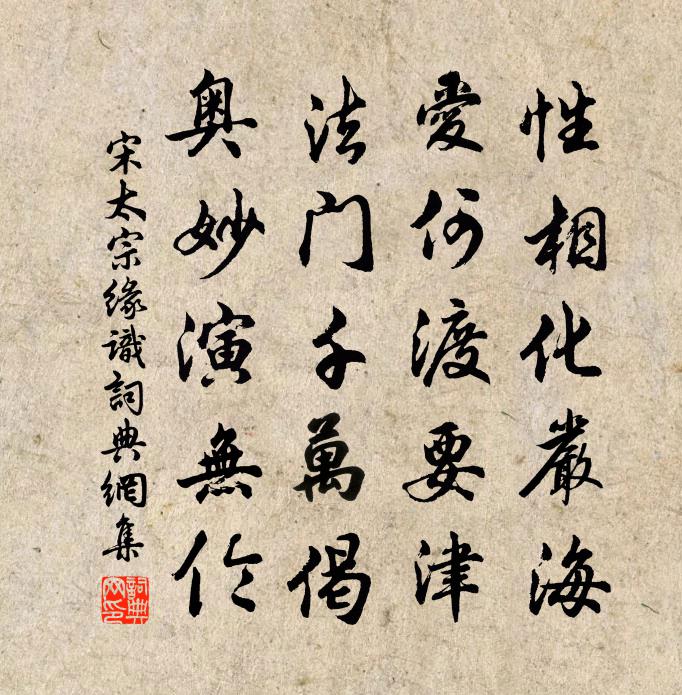 性相化嚴海
愛何渡要津
法門千萬偈
奧妙演無伦
宋太宗緣識詞典網集
詞典网印